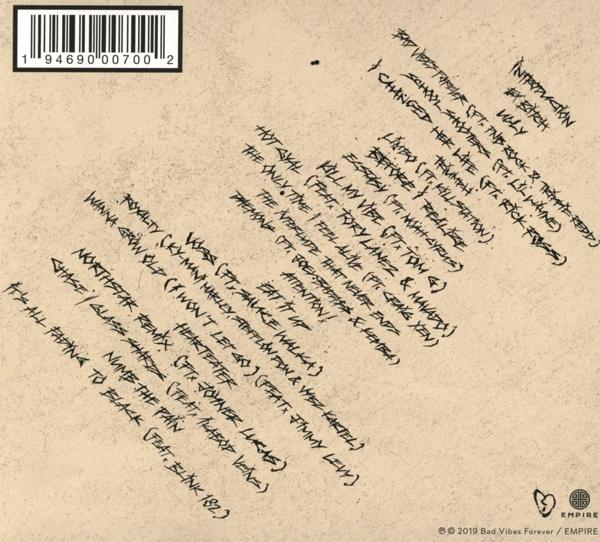 1 94690 00700 2
INTRODUCTION
EX BITCH
UGLY
BAD VIBES FOREVER (FT. PNB ROCK & TRIPPIE REDD)
SCHOOL SHOOTERS (FT. LIL WAYNE)
I CHANGED HER LIFE (FT. RICK ROSS)
TRIUMPH
LIMBO (FT. KILLSTATION)
BEFORE I REALIZE
ECSTASY (FT. NOAH CYRUS)
KILL MY VIBE (FT. TOM G)
HOT GYAL (FEAT. TORY LANEZ & MAVADO)
THE ONLY TIME I FEEL ALIVE (FT. CRAIG XEN)
THE INTERLUDE THAT NEVER ENDS
DAEMONS (FT. JOEY & KEMBA)
ATTENTION!
EAT IT UP
VOSS (FT. SAUCE WALKA)
ROYALTY (KY-MANI MARLEY, STEFFLON DON & VYBZ KARTEL)
WANNA GROW OLD (I WON'T LET GO) (FEAT. JIMMY LEVY)
HEARTEATER
NORTHSTAR REMIX (FT. JOYNER LUCAS)
CHASE / GLASS SHARDS (FEAT.
NUMB THE PAIN
IT'S ALL FADING TO BLACK (FEAT. BLINK 182)
EMPIRE
℗ © 2019 Bad Vibes Forever / EMPIRE